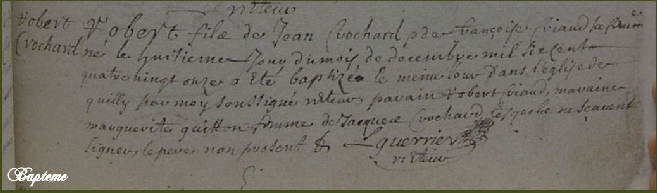 recteur
robert robert fils de Jean Crochard et de françoise riaud sa femme
Crochard né le huitieme Jour du mois de decembre mil six cent
quatre vingt onze a eté baptizé le meme Jour dans l'eglise de
quilly par moy soussigné recteur parain robert riaud, maraine
marguerite guitton femme de Jacques Crochard lesquels ne scavent
signer, le pere non present &
Lguerrier
recteur
Bapteme